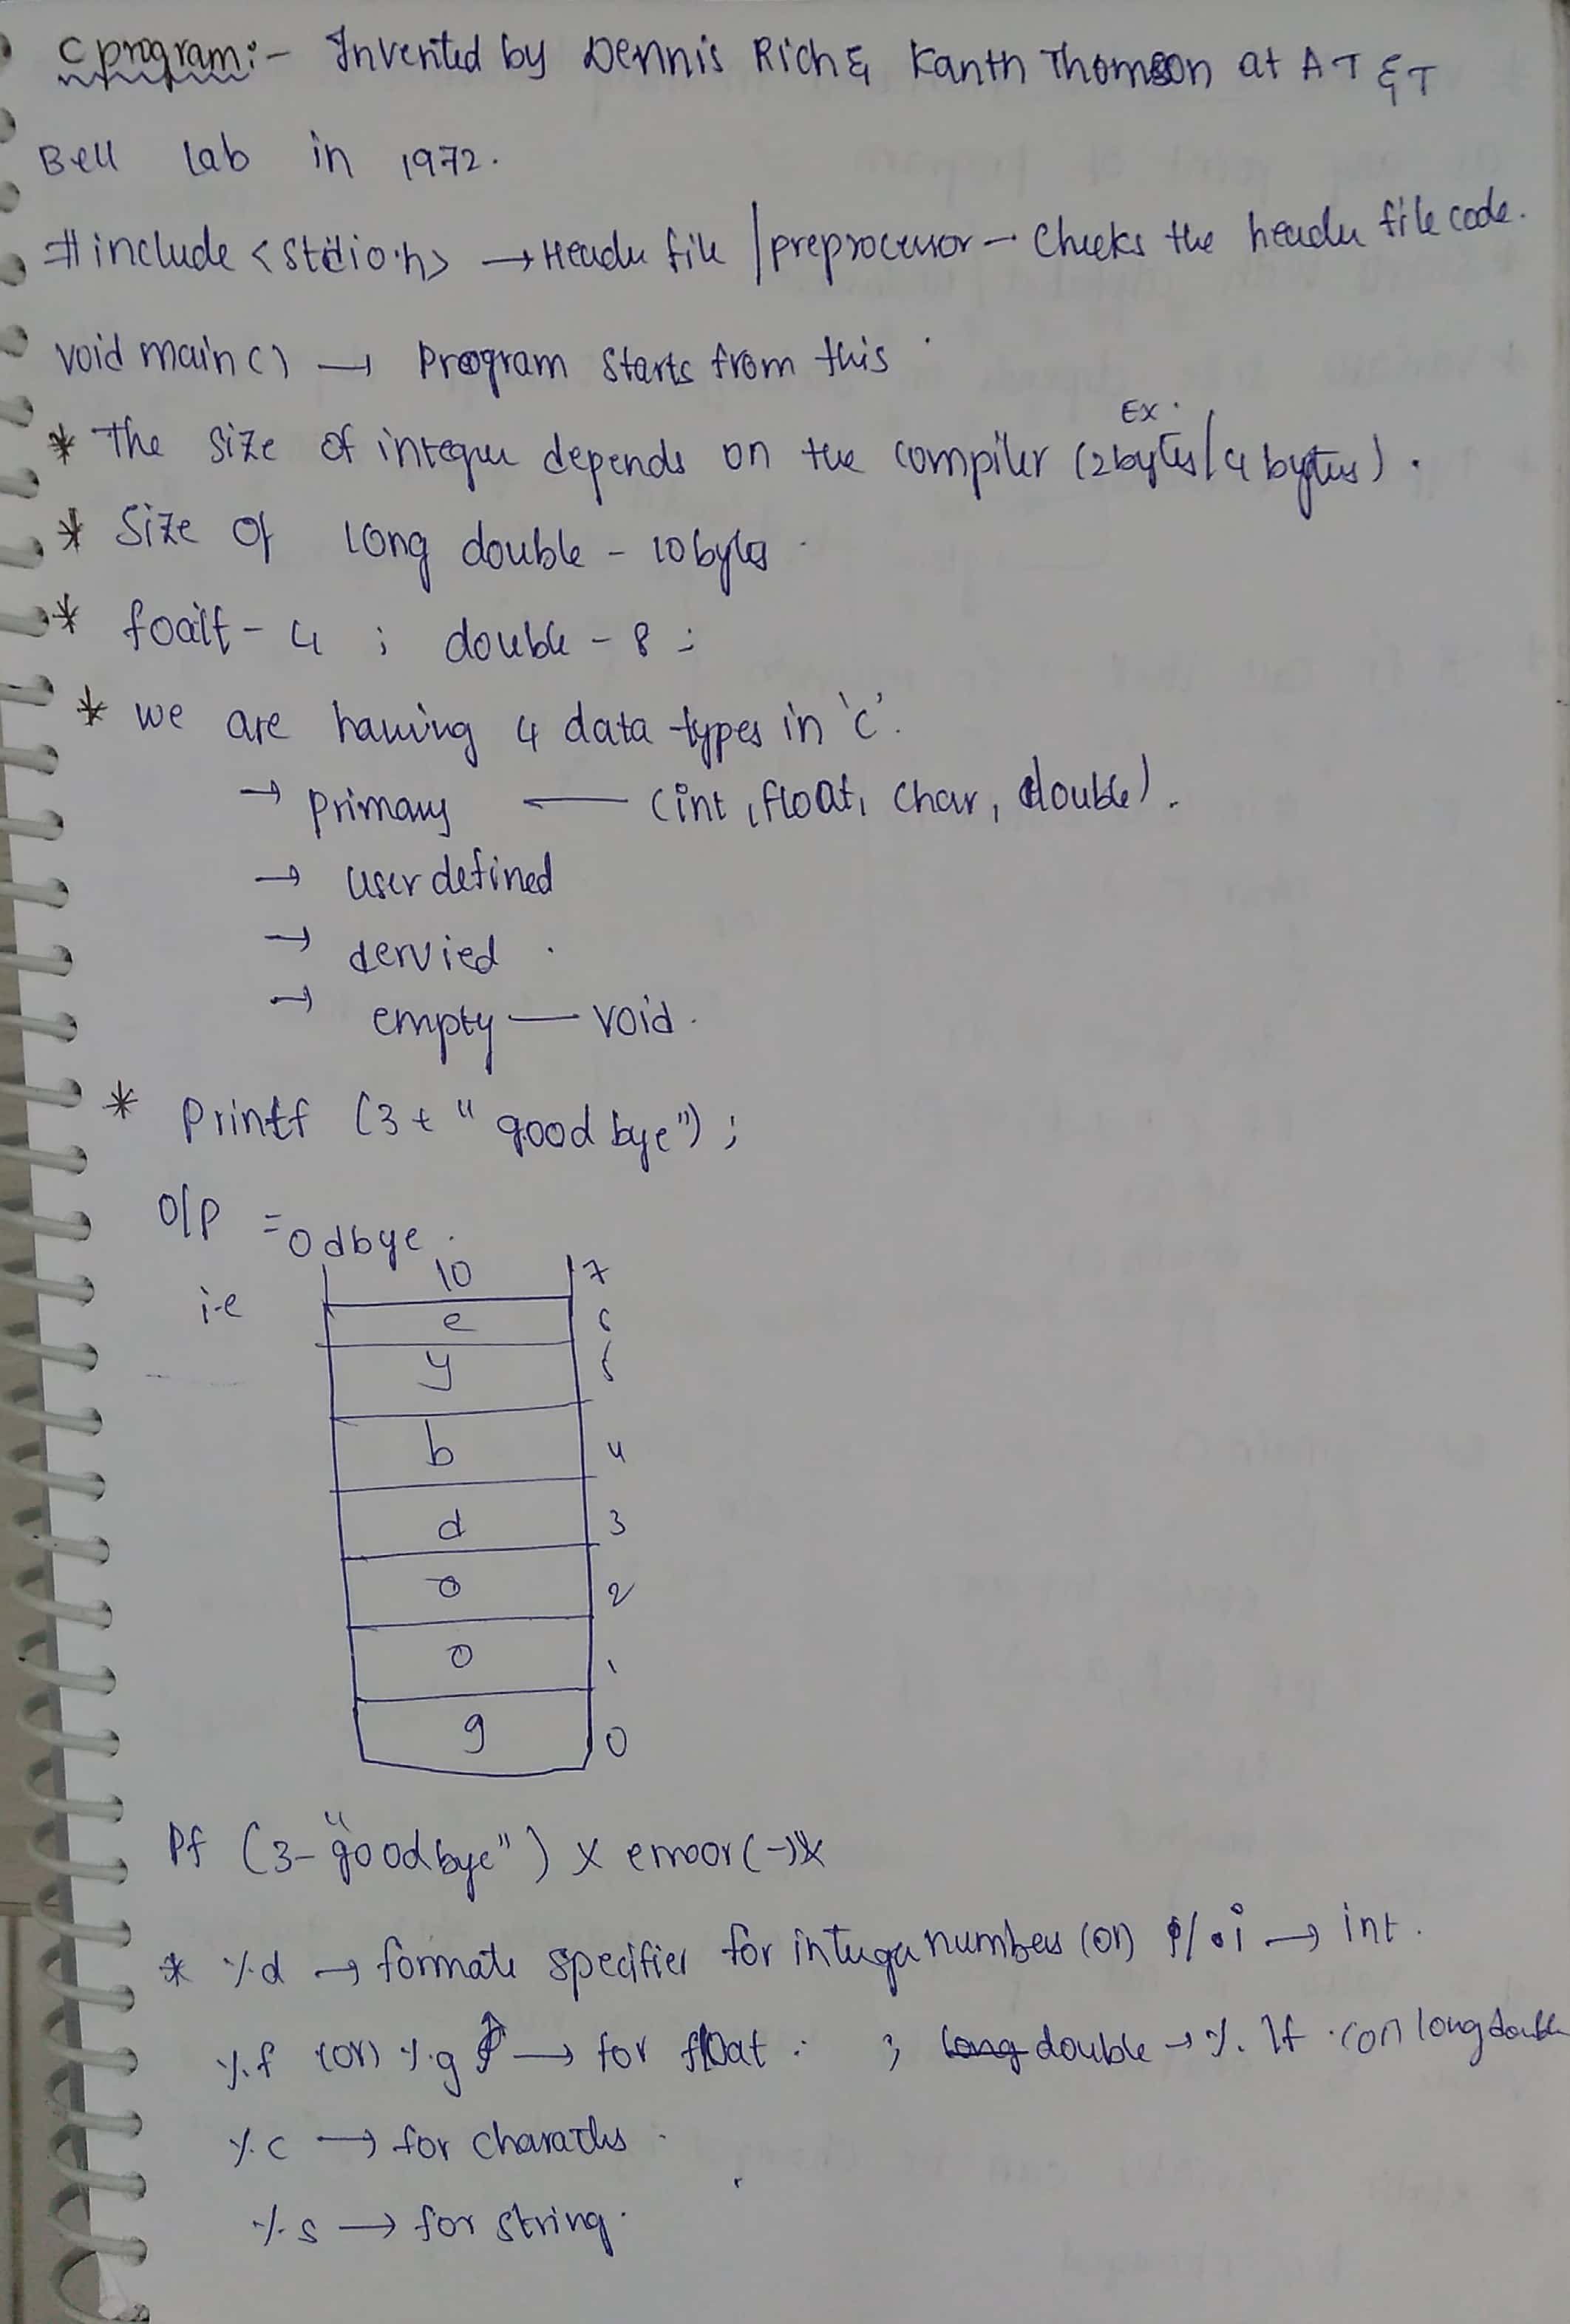 C program :- Invented by Dennis Rich & Kanth Thomson at AT & T
Bell lab in 1972.
#include <stdio.h> → Header file / preprocessor - Checks the header file code.
void main() → Program starts from this.
* The size of integer depends on the compiler (2bytes/4 bytes).
Ex.
* Size of long double - 10 bytes.
* foalt - 4 ; double - 8 ;
* we are having 4 data types in 'c'.
→ primary — (int, float, char, double).
→ user defined
→ dervied .
→ empty — void.
* Printf (3+ "good bye") ;
O/P = odbye.
i.e
10 7
e 6
y 5
b 4
d 3
o 2
o 1
g 0
Pf (3-"goodbye") X error (-)X
* %d → formate specifier for integer numbers (or) %i → int.
%f (or) %g → for float. ; long double → %. lf (or) long double
%c → for characters.
%s → for string.